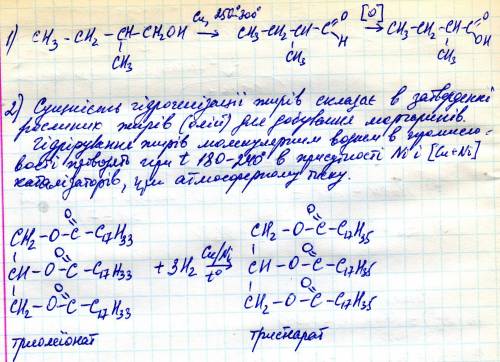 1) CH₃ - CH₂ - CH - CH₂OH Cu, 250-300° → CH₃-CH₂-CH-C=O H [O] → CH₃-CH₂-CH-C=O OH
CH₃ CH₃ CH₃
2) Сущність гідрогенізації жирів складає в затвердженні
рослинних жирів (олій) для добування маргаринів.
Гідрування жирів молекулярним воднем в промисло-
вості проводять при t 180-240° в присутності Ni і [Cu+Ni]
каталізаторів, при атмосферному тиску.
CH₂-O-C(=O)-C₁₇H₃₃ CH₂-O-C(=O)-C₁₇H₃₅
CH-O-C(=O)-C₁₇H₃₃ + 3H₂ Cu/Ni → t° CH-O-C(=O)-C₁₇H₃₅
CH₂-O-C(=O)-C₁₇H₃₃ CH₂-O-C(=O)-C₁₇H₃₅
триолеіонат тристиарат